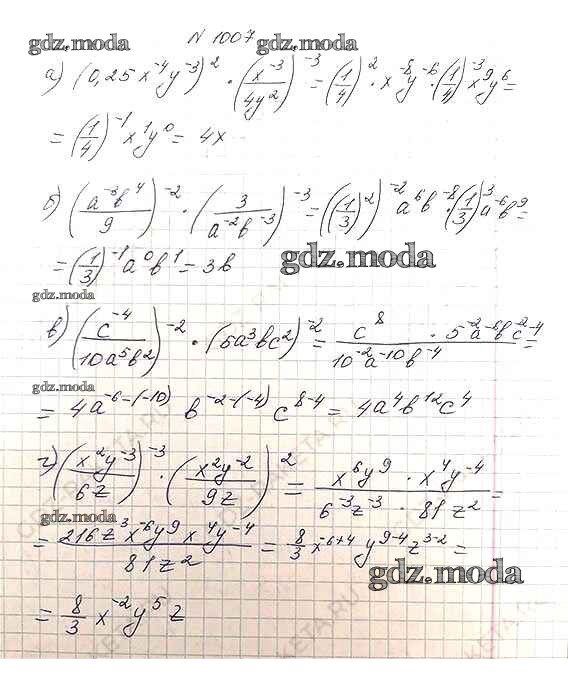 N 1007
gdz.moda gdz.moda
а) (0,25x⁻⁴y⁻³)² · (x⁻³/4y²)⁻³ = (1/4)² · x⁻⁸y⁻⁶ · (1/4)⁻³ x⁹y⁶ =
= (1/4)⁻¹ x¹y⁰ = 4x
gdz.moda
б) (a⁻³b⁴/9)⁻² · (3/a⁻²b⁻³)⁻³ = ((1/3)²)⁻² a⁶b⁻⁸ · (1/3)³ a⁻⁶b⁹ =
= (1/3)⁻¹ a⁰b¹ = 3b
gdz.moda
gdz.moda
в) (c⁻⁴/10a⁵b²)⁻² · (5a³bc²)⁻² = c⁸ · 5⁻²a⁻⁶b⁻²c⁻⁴/10⁻²a⁻¹⁰b⁻⁴ =
gdz.moda
= 4a⁻⁶⁻⁽⁻¹⁰⁾ b⁻²⁻⁽⁻⁴⁾ c⁸⁻⁴ = 4a⁴b¹²c⁴
г) (x²y⁻³/6z)⁻³ · (x²y⁻²/9z)² = x⁶y⁹ · x⁴y⁻⁴/6⁻³z⁻³ · 81z² =
gdz.moda
= 216z³x⁻⁶y⁹x⁴y⁻⁴/81z² = 8/3 x⁻⁶⁺⁴ y⁹⁻⁴z³⁻² =
gdz.moda
= 8/3 x⁻²y⁵z